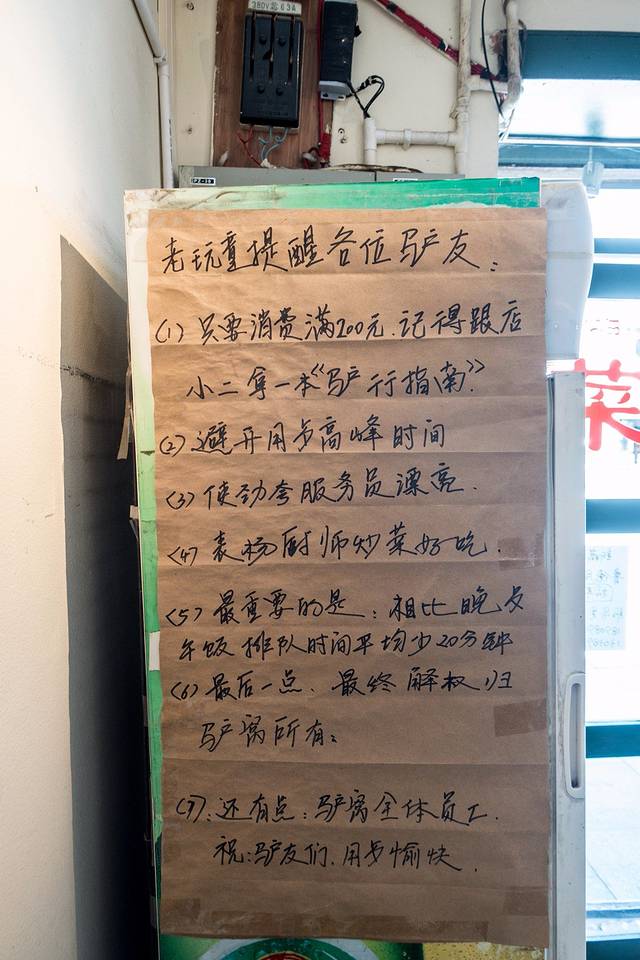 380V 63A
老玩童提醒各位驴友：
(1) 只要消费满200元.记得跟店
小二拿一本《驴行指南》.
(2) 避开用歺高峰时间
(3) 使劲夸服务员漂亮.
(4) 表扬厨师炒菜好吃.
(5) 最重要的是：相比晚歺
午饭排队时间平均少20分钟
(6) 最后一点、最终解权归
驴窝所有：
(7):还有点：驴窝全体员工.
祝:驴友们.用歺愉快.
菜